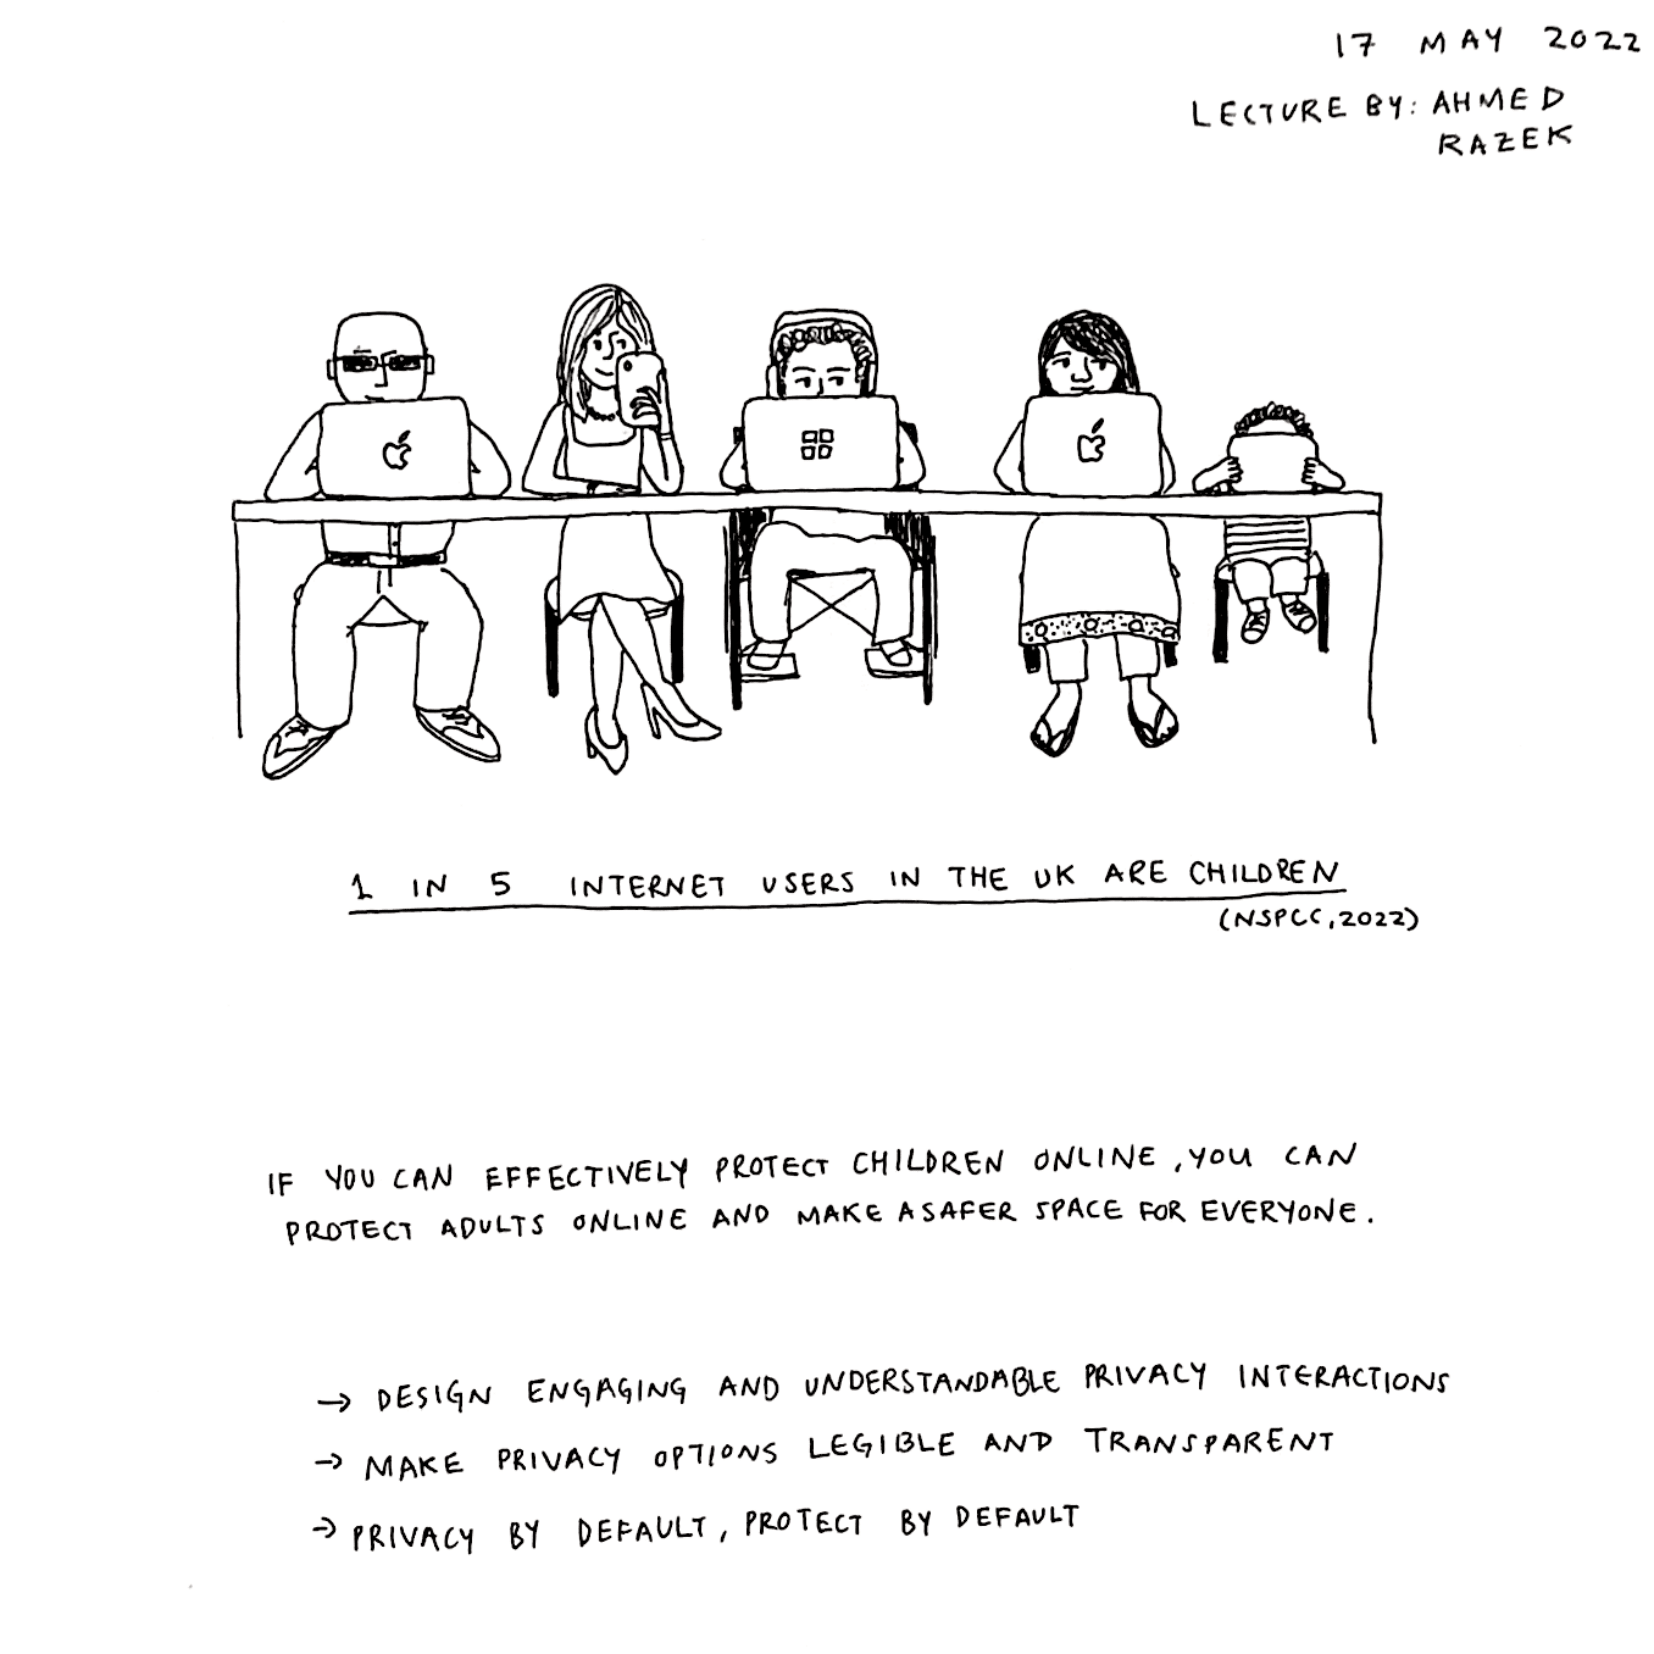 17 MAY 2022
LECTURE BY: AHMED
RAZEK
1 IN 5 INTERNET USERS IN THE UK ARE CHILDREN
(NSPCC, 2022)
IF YOU CAN EFFECTIVELY PROTECT CHILDREN ONLINE, YOU CAN
PROTECT ADULTS ONLINE AND MAKE A SAFER SPACE FOR EVERYONE.
→ DESIGN ENGAGING AND UNDERSTANDABLE PRIVACY INTERACTIONS
→ MAKE PRIVACY OPTIONS LEGIBLE AND TRANSPARENT
→ PRIVACY BY DEFAULT, PROTECT BY DEFAULT